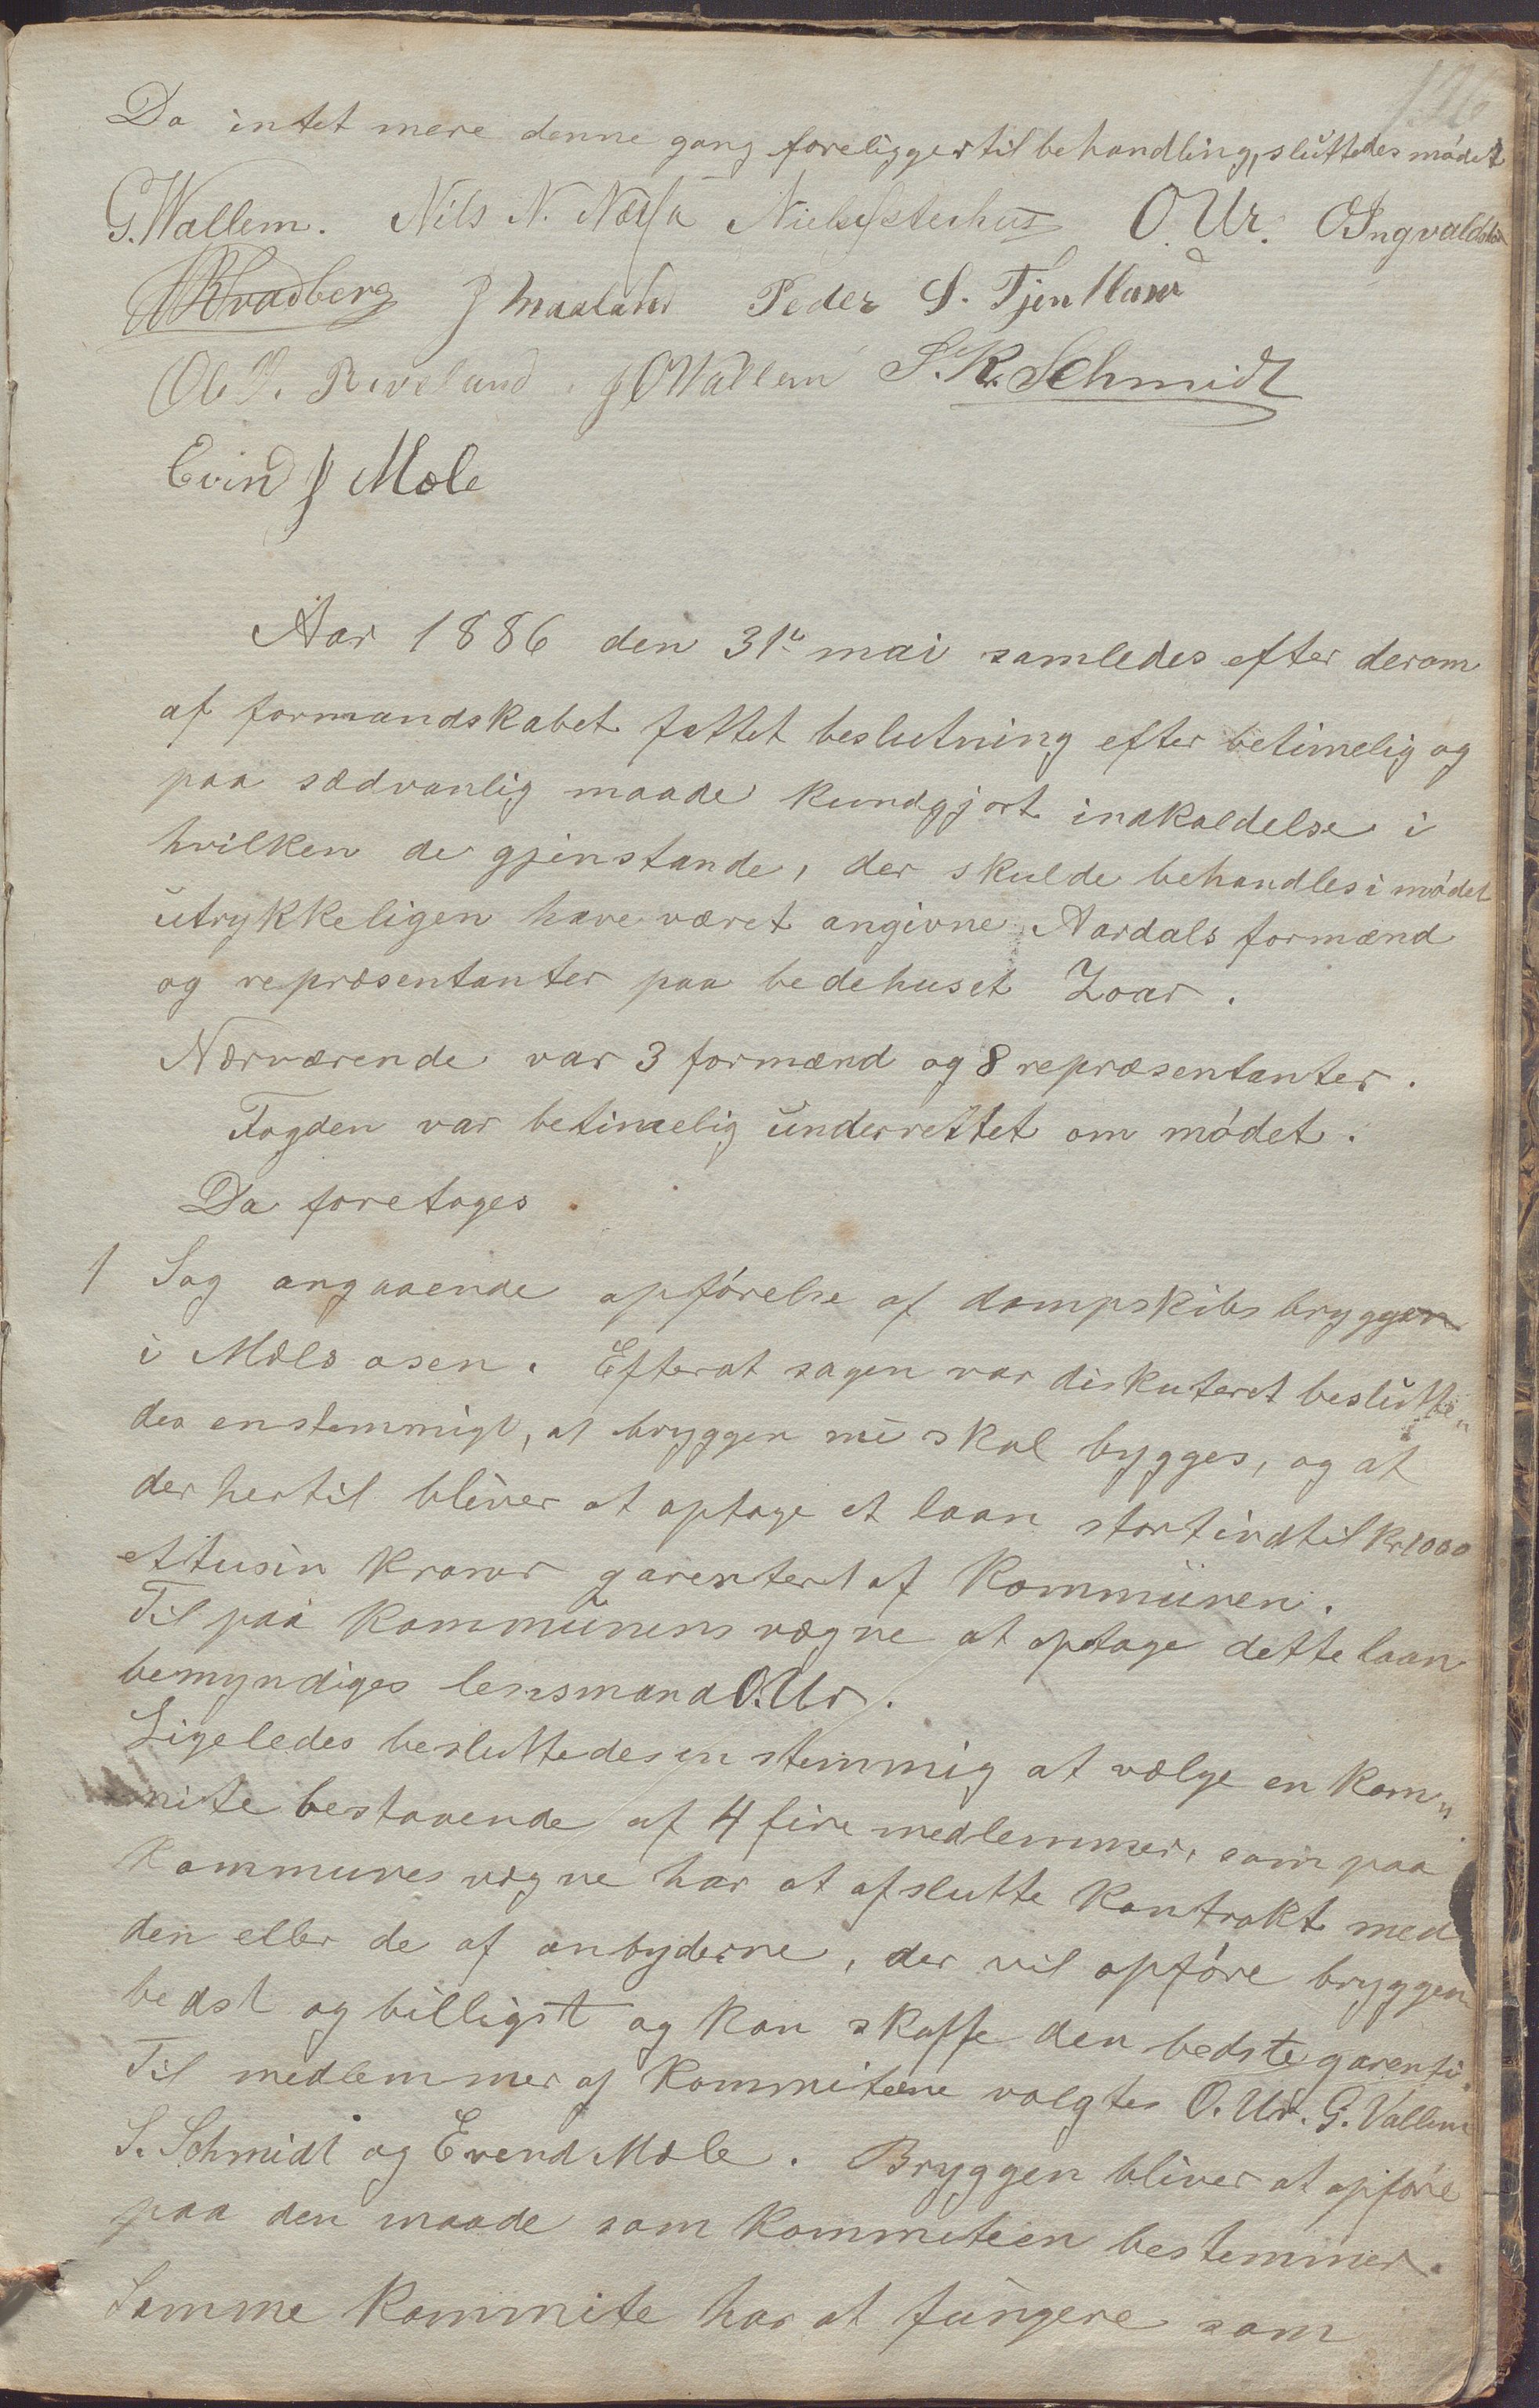 126
Da intet mere denne gang foreligger til behandling, sluttedes mødet
G. Wallem. Nils N. Nessa Niels Østerhus O. Ur. O Ingvaldsen
Kvadberg J Maaland Peder S. Tjentland
Ole O. Riveland. J O Wallem S. K. Schmidt
Evind J Mæle
Aar 1886 den 31te mai samledes efter derom
af formandskabet fattet beslutning efter betimelig og
paa sædvanlig maade kundgjort indkaldelse i
hvilken de gjenstande, der skulde behandles i mødet
utrykkeligen have været angivne, Aardals formænd
og repræsentanter paa bedehuset Zoar.
Nærværende var 3 formænd og 8 repræsentanter.
Fogden var betimelig underrettet om mødet.
Da foretoges
1 Sag angaaende opførelse af dampskibsbryggen
i Mælsosen. Efterat sagen var diskuteret beslutte„
des enstemmigt, at bryggen nu skal bygges, og at
der hertil bliver at optage et laan stort indtil Kr 1000
ettusin kroner garentert af Kommunen.
Til paa Kommunens vægne at optage dette laan
bemyndiges lensmand O. Ur.
Ligeledes besluttedes enstemmig at vælge en kom„
mite bestaaende af 4 fire medlemmer, som paa
Kommunes vægne har at afslutte Kontrakt med
den eller de af anbyderne, der vil opføre bryggen
bedst og billigst og kan skaffe den bedste garenti.
Til medlemmer af Kommiteene valgtes O. Ur. G. Vallem
S. Schmidt og Evend Mæle. Bryggen bliver at opføre
paa den maade som Kommiteen bestemmer.
Samme Kommite har at fungere som